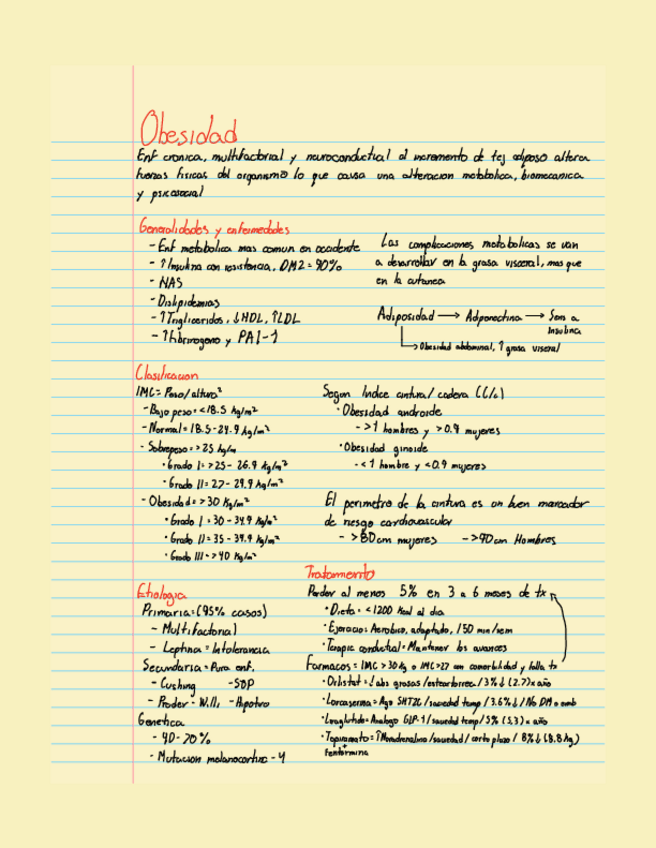 Obesidad
Enf cronica, multifactorial y neuroconductual al incremento de tej adiposo altera
fuerzas fisicas del organismo lo que causa una alteracion metabolica, biomecanica
y psicosocial
Generalidades y enfermedades
- Enf metabolica mas comun en occidente
- ↑Insulina con resistencia, DM2 = 90%
- NAS
- Dislipidemias
- ↑Trigliceridos, ↓HDL, ↑LDL
- ↑fibrinogeno y PAI-1
Las complicaciones metabolicas se van
a desarrollar en la grasa visceral, mas que
en la cutanea
Adiposidad → Adiponectina → Sen a
Insulina
→ Obesidad abdominal, ↑ grasa visceral
Clasificacion
IMC = Peso/altura²
- Bajo peso = <18.5 Kg/m²
- Normal = 18.5-24.9 Kg/m²
- Sobrepeso = >25 kg/m
• Grado I = >25 - 26.9 Kg/m²
• Grado II = 27 - 29.9 Kg/m²
- Obesidad = >30 Kg/m²
• Grado I = 30 - 34.9 Kg/m²
• Grado II = 35 - 39.9 Kg/m²
• Grado III = >40 Kg/m²
Segun Indice cintura/cadera (C/c)
• Obesidad androide
- >1 hombres y >0.9 mujeres
• Obesidad ginoide
- <1 hombre y <0.9 mujeres
El perimetro de la cintura es un buen marcador
de riesgo cardiovascular
- >80 cm mujeres - >90 cm Hombres
Etiologia
Primaria = (95% casos)
- Multifactorial
- Leptina = Intolerancia
Secundaria = Pura enf.
- Cushing - SOP
- Prader-Willi - Hipotiro
Genetica
- 40-70%
- Mutacion melanocortina-4
Tratamiento
Perder al menos 5% en 3 a 6 meses de tx
• Dieta = <1200 Kcal al dia
• Ejercicio = Aerobico, adaptado, 150 min/sem
• Terapia conductual = Mantener los avances
Farmacos = IMC >30 kg o IMC >27 con comorbilidad y falla tx
• Orlistat = ↓abs grasas/esteatorrea/3%↓ (2.7) x año
• Lorcaserina = Ago 5HT2C/saciedad temp/3.6%↓/No DM o emb
• Liraglutida = Analogo GLP-1/saciedad temp/5% (5.3) x año
• Topiramato = ↑Noradrenalina/saciedad/corto plazo/8%↓ (8.8 kg)
+
Fentermina